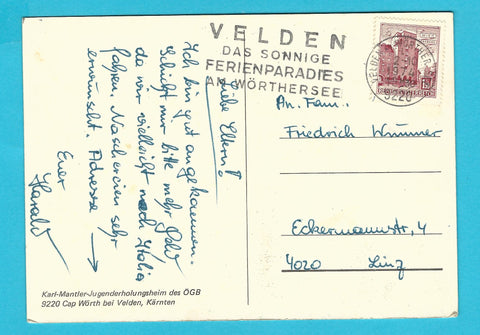 VELDEN
DAS SONNIGE
FERIENPARADIES
AM WÖRTHERSEE
9220
Liebe Eltern!
Ich bin gut angekommen.
Schickt mir bitte mehr Geld
da wir vielleicht nach Italia
fahren. Naschereien sehr
erwünscht. Adresse →
Euer
Harald
An Fam.
Friedrich Wimmer
Eckermannstr. 4
4020 Linz
Karl-Mantler-Jugenderholungsheim des ÖGB
9220 Cap Wörth bei Velden, Kärnten